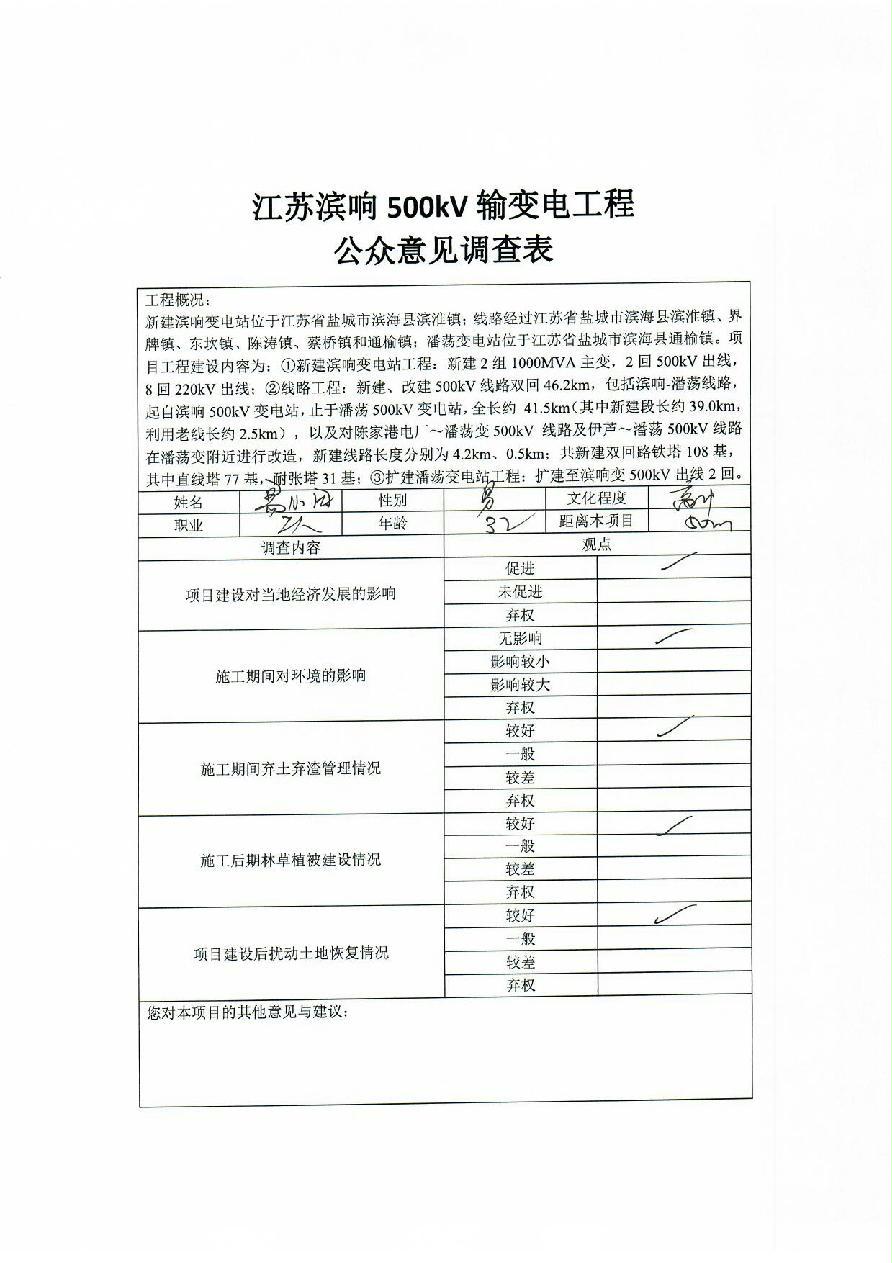 江苏滨响 500kV 输变电工程
公众意见调查表
工程概况：
新建滨响变电站位于江苏省盐城市滨海县滨淮镇；线路经过江苏省盐城市滨海县滨淮镇、界
牌镇、东坎镇、陈涛镇、蔡桥镇和通榆镇；潘荡变电站位于江苏省盐城市滨海县通榆镇。项
目工程建设内容为：①新建滨响变电站工程：新建 2 组 1000MVA 主变，2 回 500kV 出线，
8 回 220kV 出线；②线路工程：新建、改建 500kV 线路双回 46.2km，包括滨响-潘荡线路，
起自滨响 500kV 变电站，止于潘荡 500kV 变电站，全长约 41.5km（其中新建段长约 39.0km，
利用老线长约 2.5km），以及对陈家港电厂～潘荡变 500kV 线路及伊芦～潘荡 500kV 线路
在潘荡变附近进行改造，新建线路长度分别为 4.2km、0.5km；共新建双回路铁塔 108 基，
其中直线塔 77 基，耐张塔 31 基；③扩建潘荡变电站工程：扩建至滨响变 500kV 出线 2 回。
姓名 性别 男 文化程度
职业 工人 年龄 32 距离本项目 50m
调查内容 观点
项目建设对当地经济发展的影响
促进 ✓
未促进
弃权
施工期间对环境的影响
无影响 ✓
影响较小
影响较大
弃权
施工期间弃土弃渣管理情况
较好 ✓
一般
较差
弃权
施工后期林草植被建设情况
较好 ✓
一般
较差
弃权
项目建设后扰动土地恢复情况
较好 ✓
一般
较差
弃权
您对本项目的其他意见与建议：